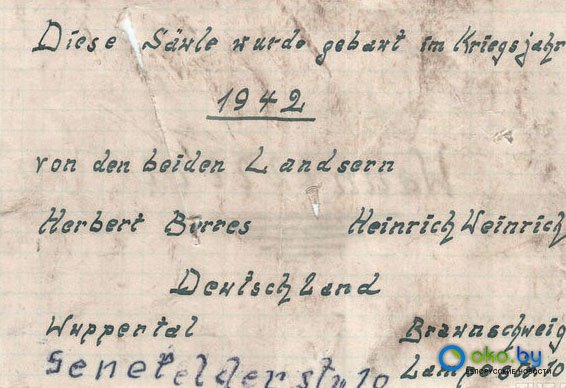 Diese Säule wurde gebaut im Kriegsjahr
1942
von den beiden Landsern
Herbert Börres Heinrich Weinrich
Deutschland
Wuppertal Braunschweig
Senefelderstr 10 10
oko.by
БЕЛОРУССКИЕ НОВОСТИ